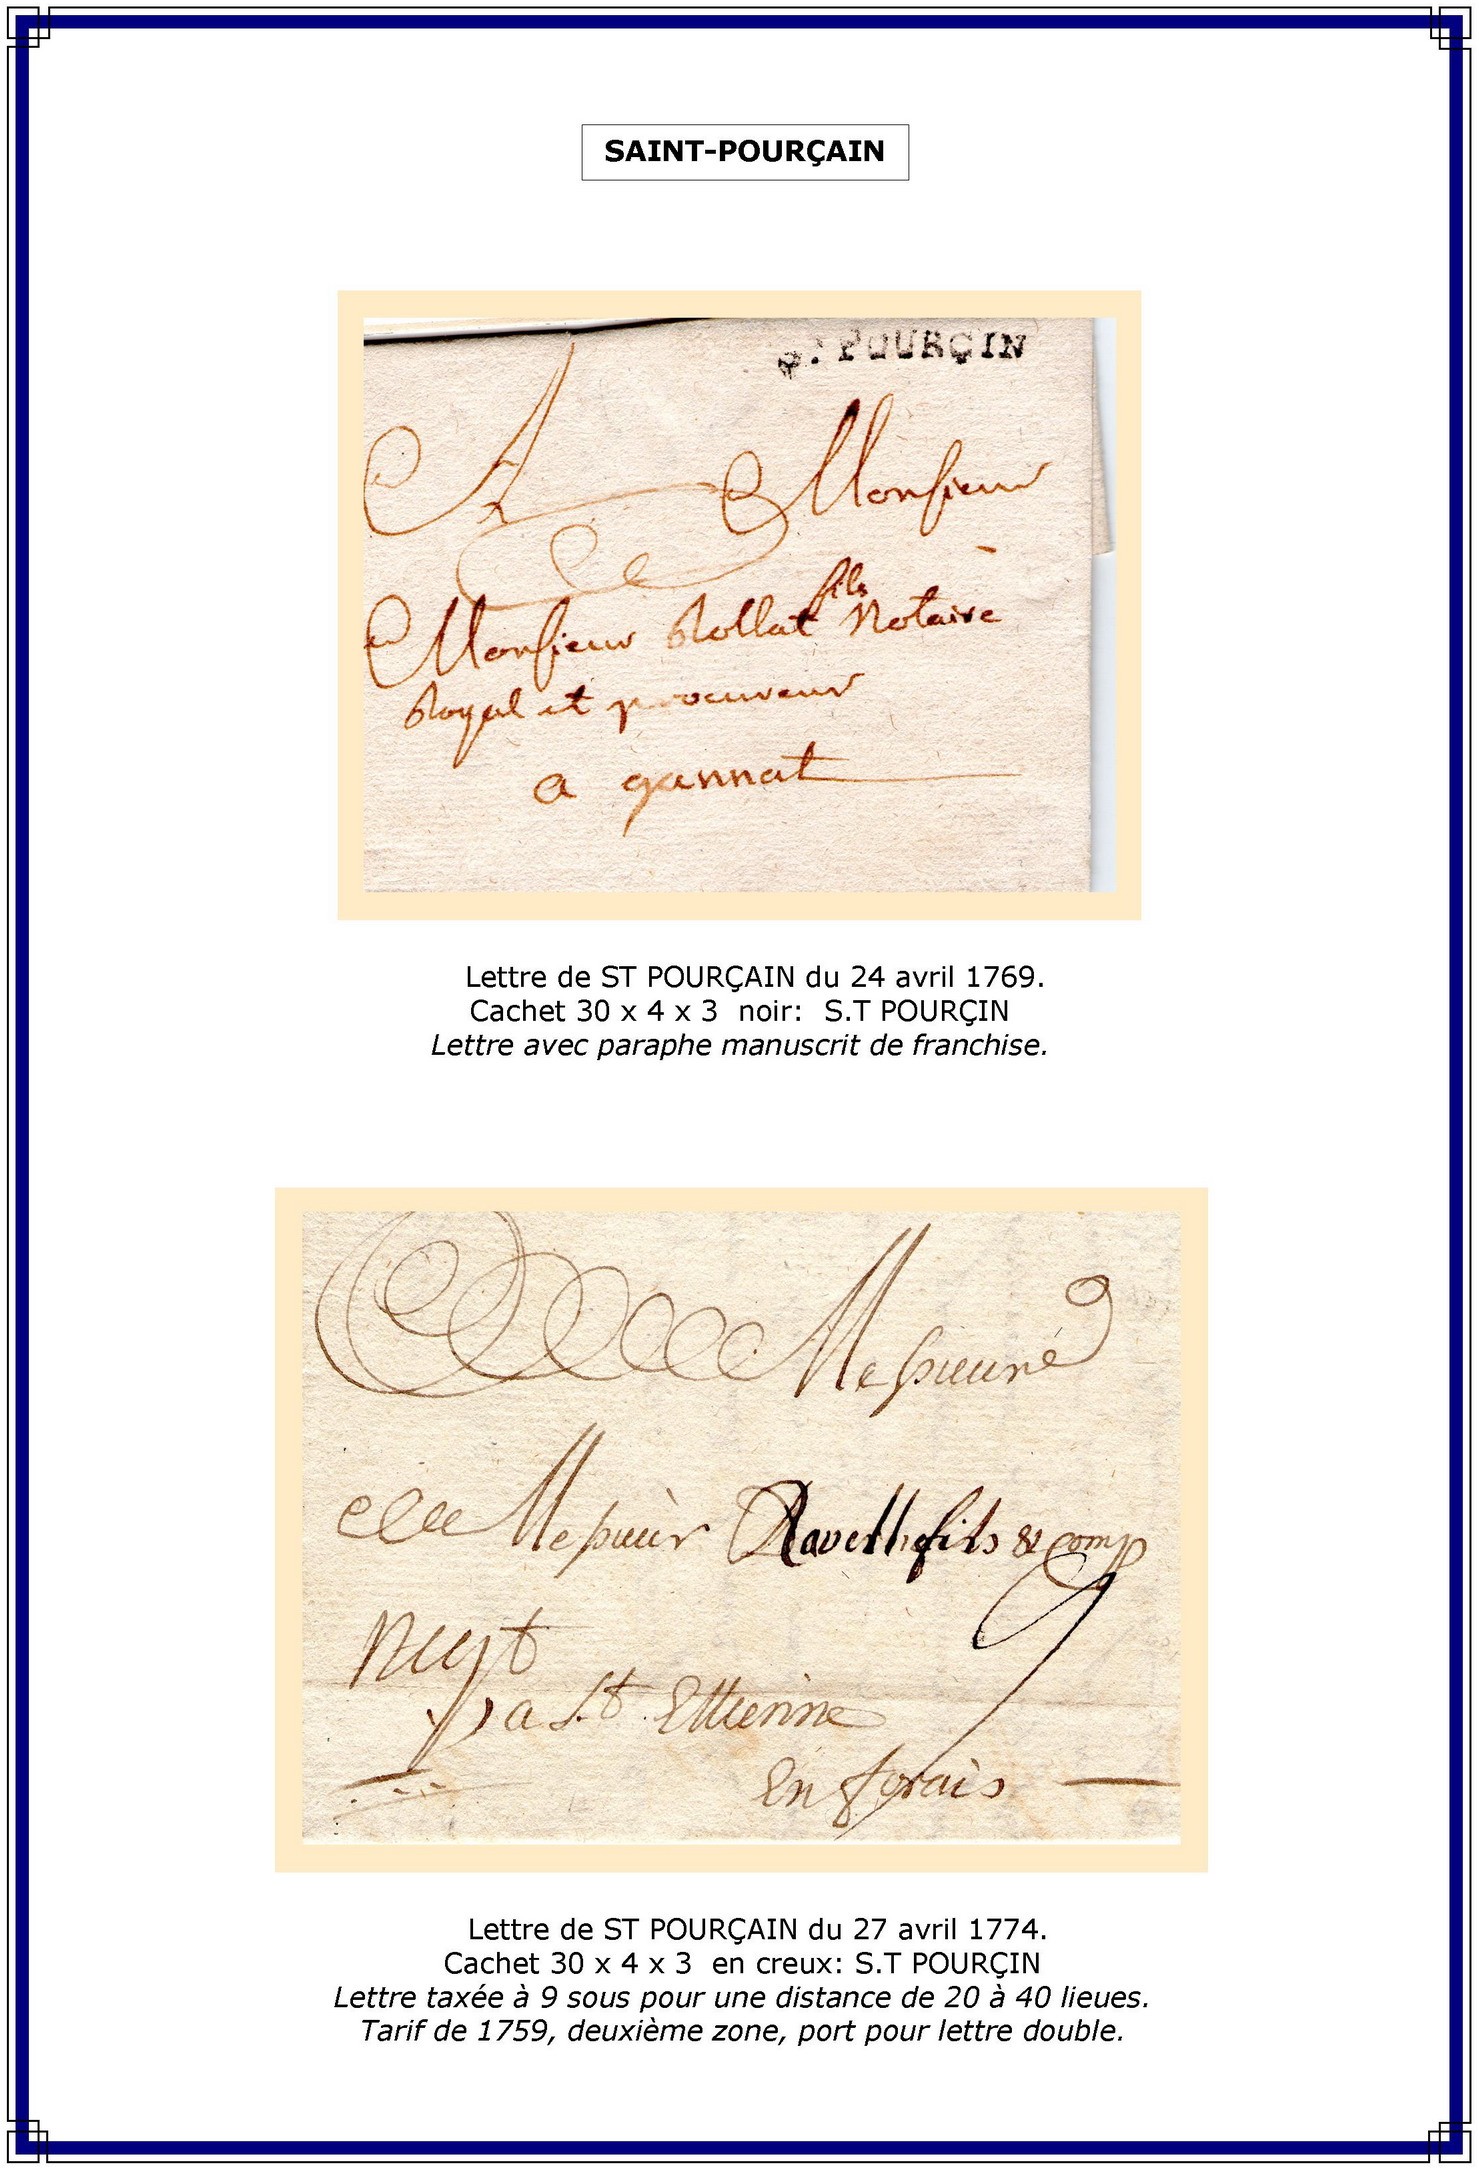 SAINT-POURÇAIN
S.T POURÇIN
A Monsieur
fils
Monsieur Rollat Notaire
Royal et procureur
a gannat
Lettre de ST POURÇAIN du 24 avril 1769.
Cachet 30 x 4 x 3 noir: S.T POURÇIN
Lettre avec paraphe manuscrit de franchise.
Messieurs
Messieur fils & comp
9
a St. Ettienne
En forais
Lettre de ST POURÇAIN du 27 avril 1774.
Cachet 30 x 4 x 3 en creux: S.T POURÇIN
Lettre taxée à 9 sous pour une distance de 20 à 40 lieues.
Tarif de 1759, deuxième zone, port pour lettre double.